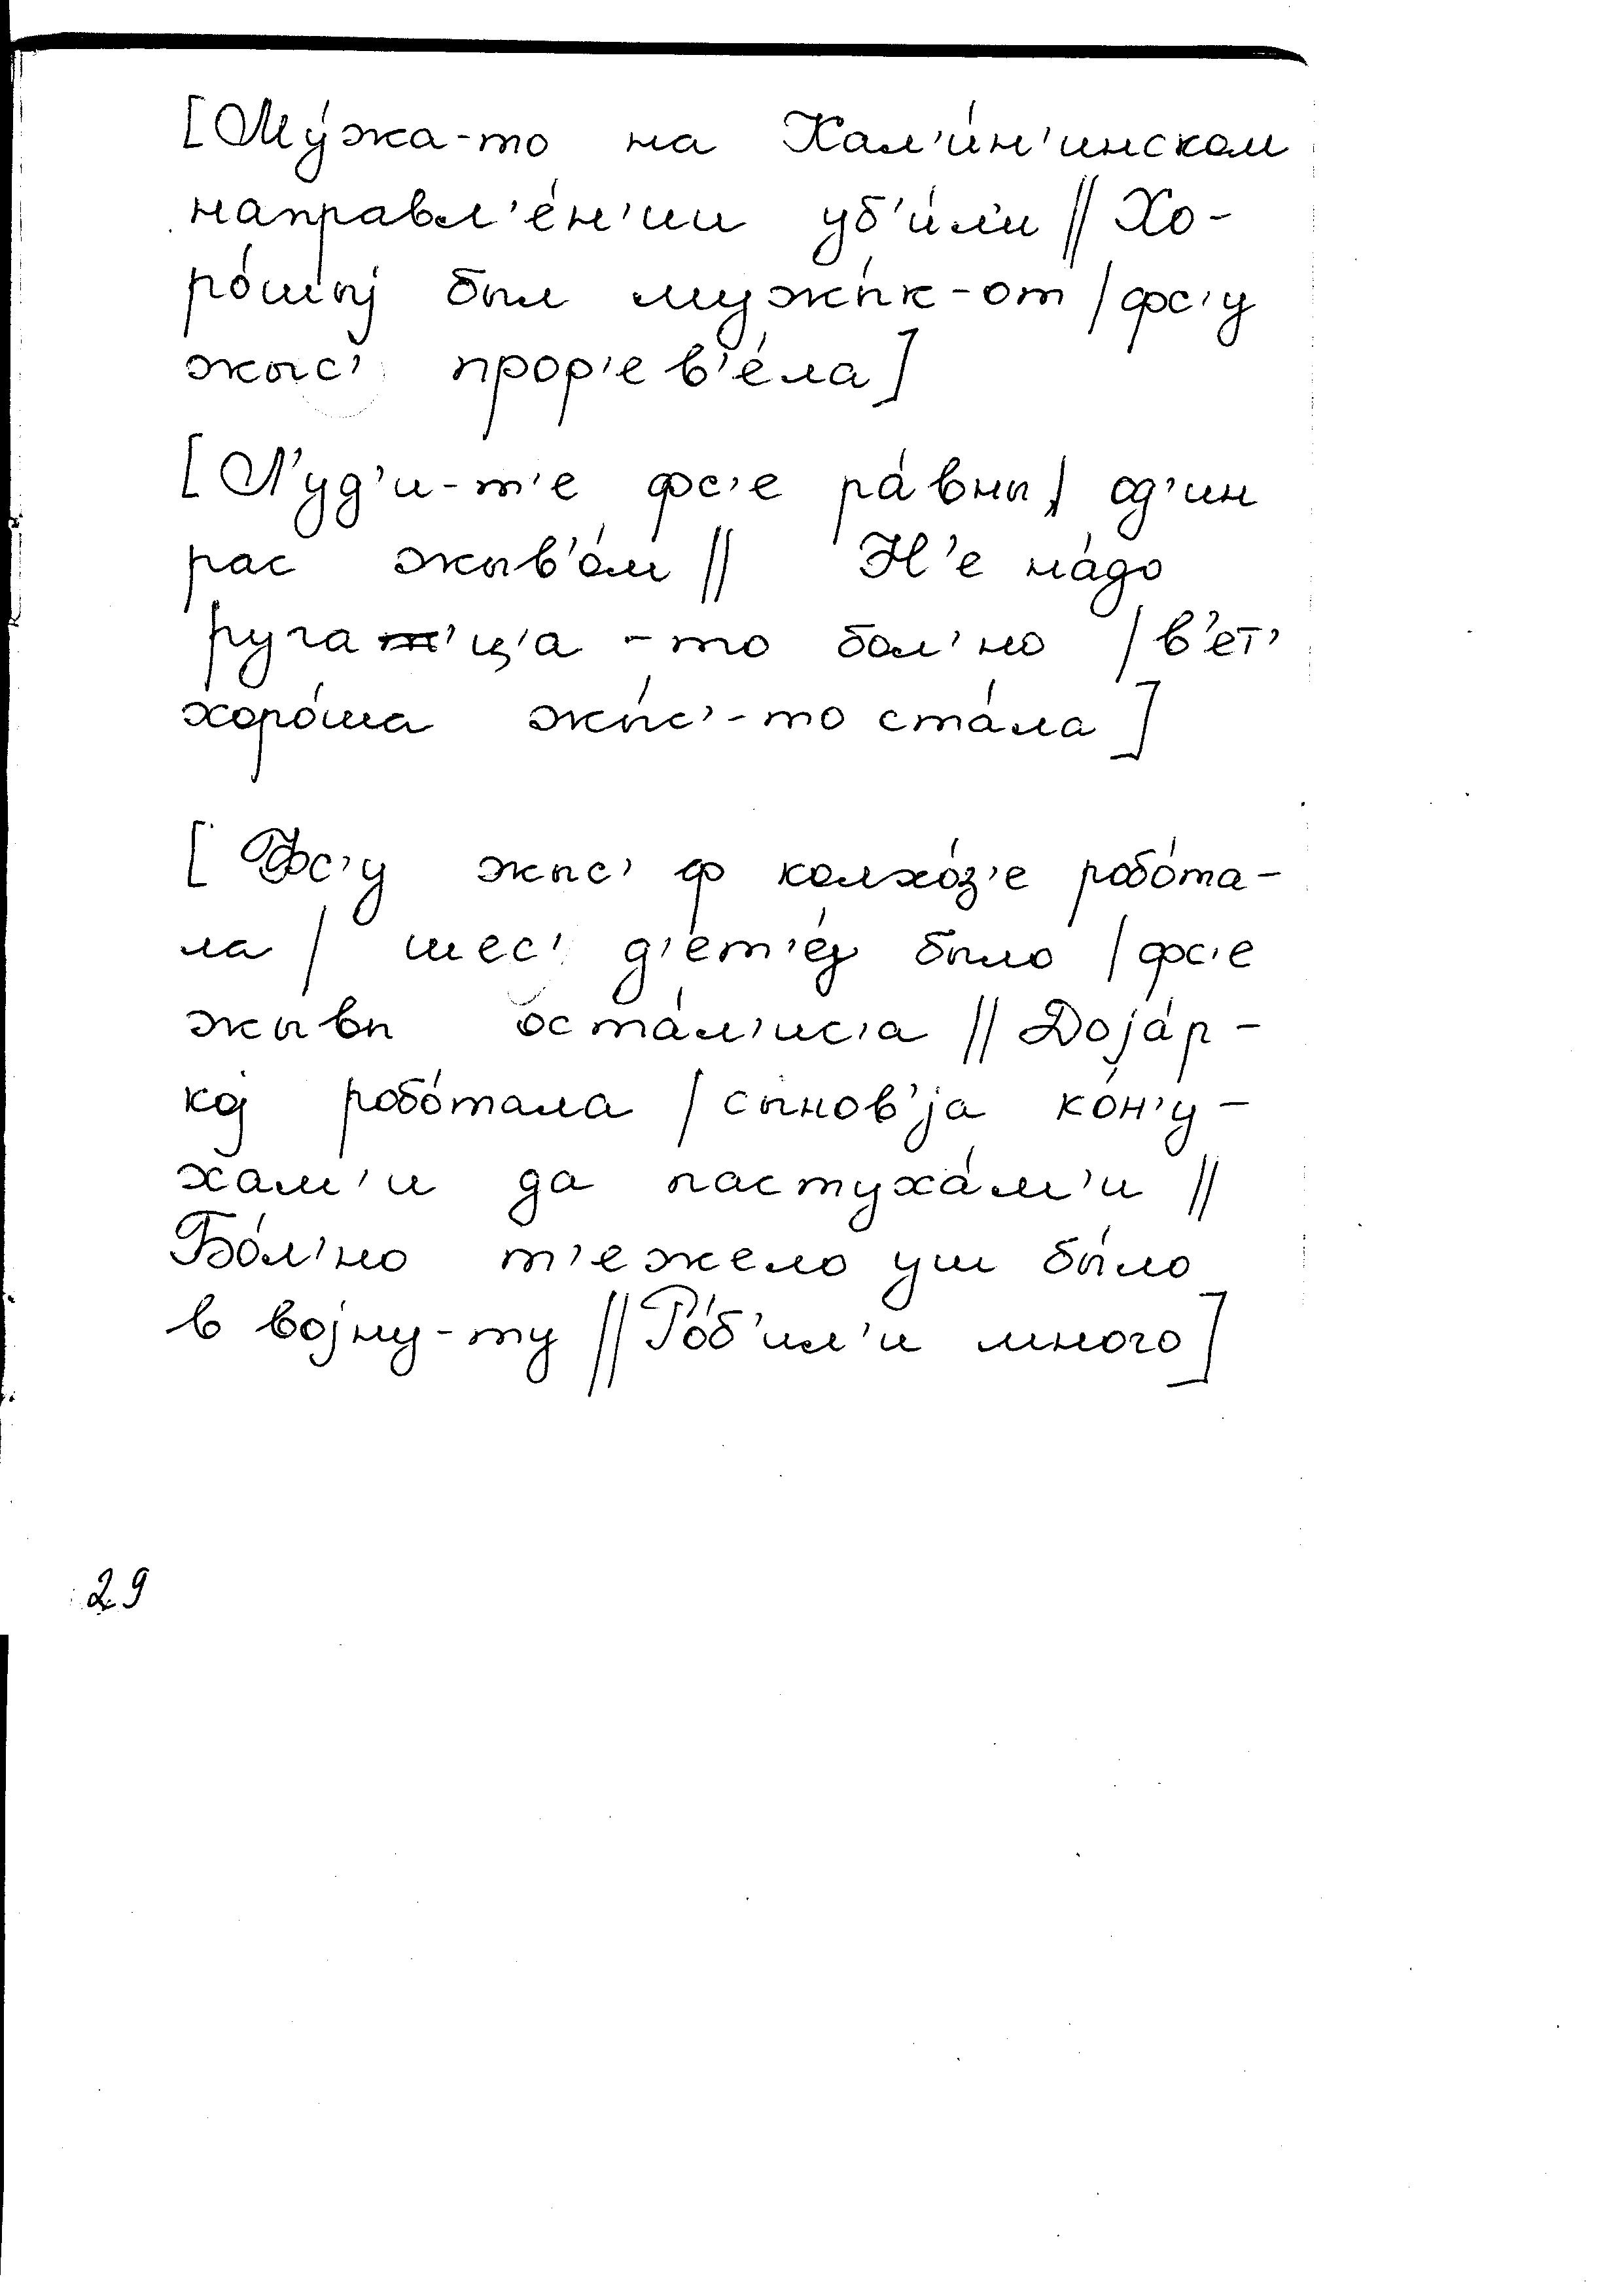 [Му́жа-то на Кал'и́н'инском
направл'е́н'ии уб'и́ли || Хо-
ро́шыj был мужы́к-от | фс'у
жыс' прор'ев'е́ла]
[Л'уд'и-т'е фс'е ра́вны | од'ин
рас жыв'о́м || Н'е на́до
руга ц'а -то бол'но | в'ет'
хоро́ша жы́с'-то ста́ла]
[Фс'у жыс' ф колхо́з'е робо́та-
ла | шес' д'ет'е́j было | фс'е
жывы оста́л'ис'а || Доjа́р-
коj робо́тала | сынов'jа ко́н'у-
хам'и да пастуха́м'и ||
Бо́л'но т'ежело уш бы́ло
в воjну-ту || Ро́б'ил'и много]
29